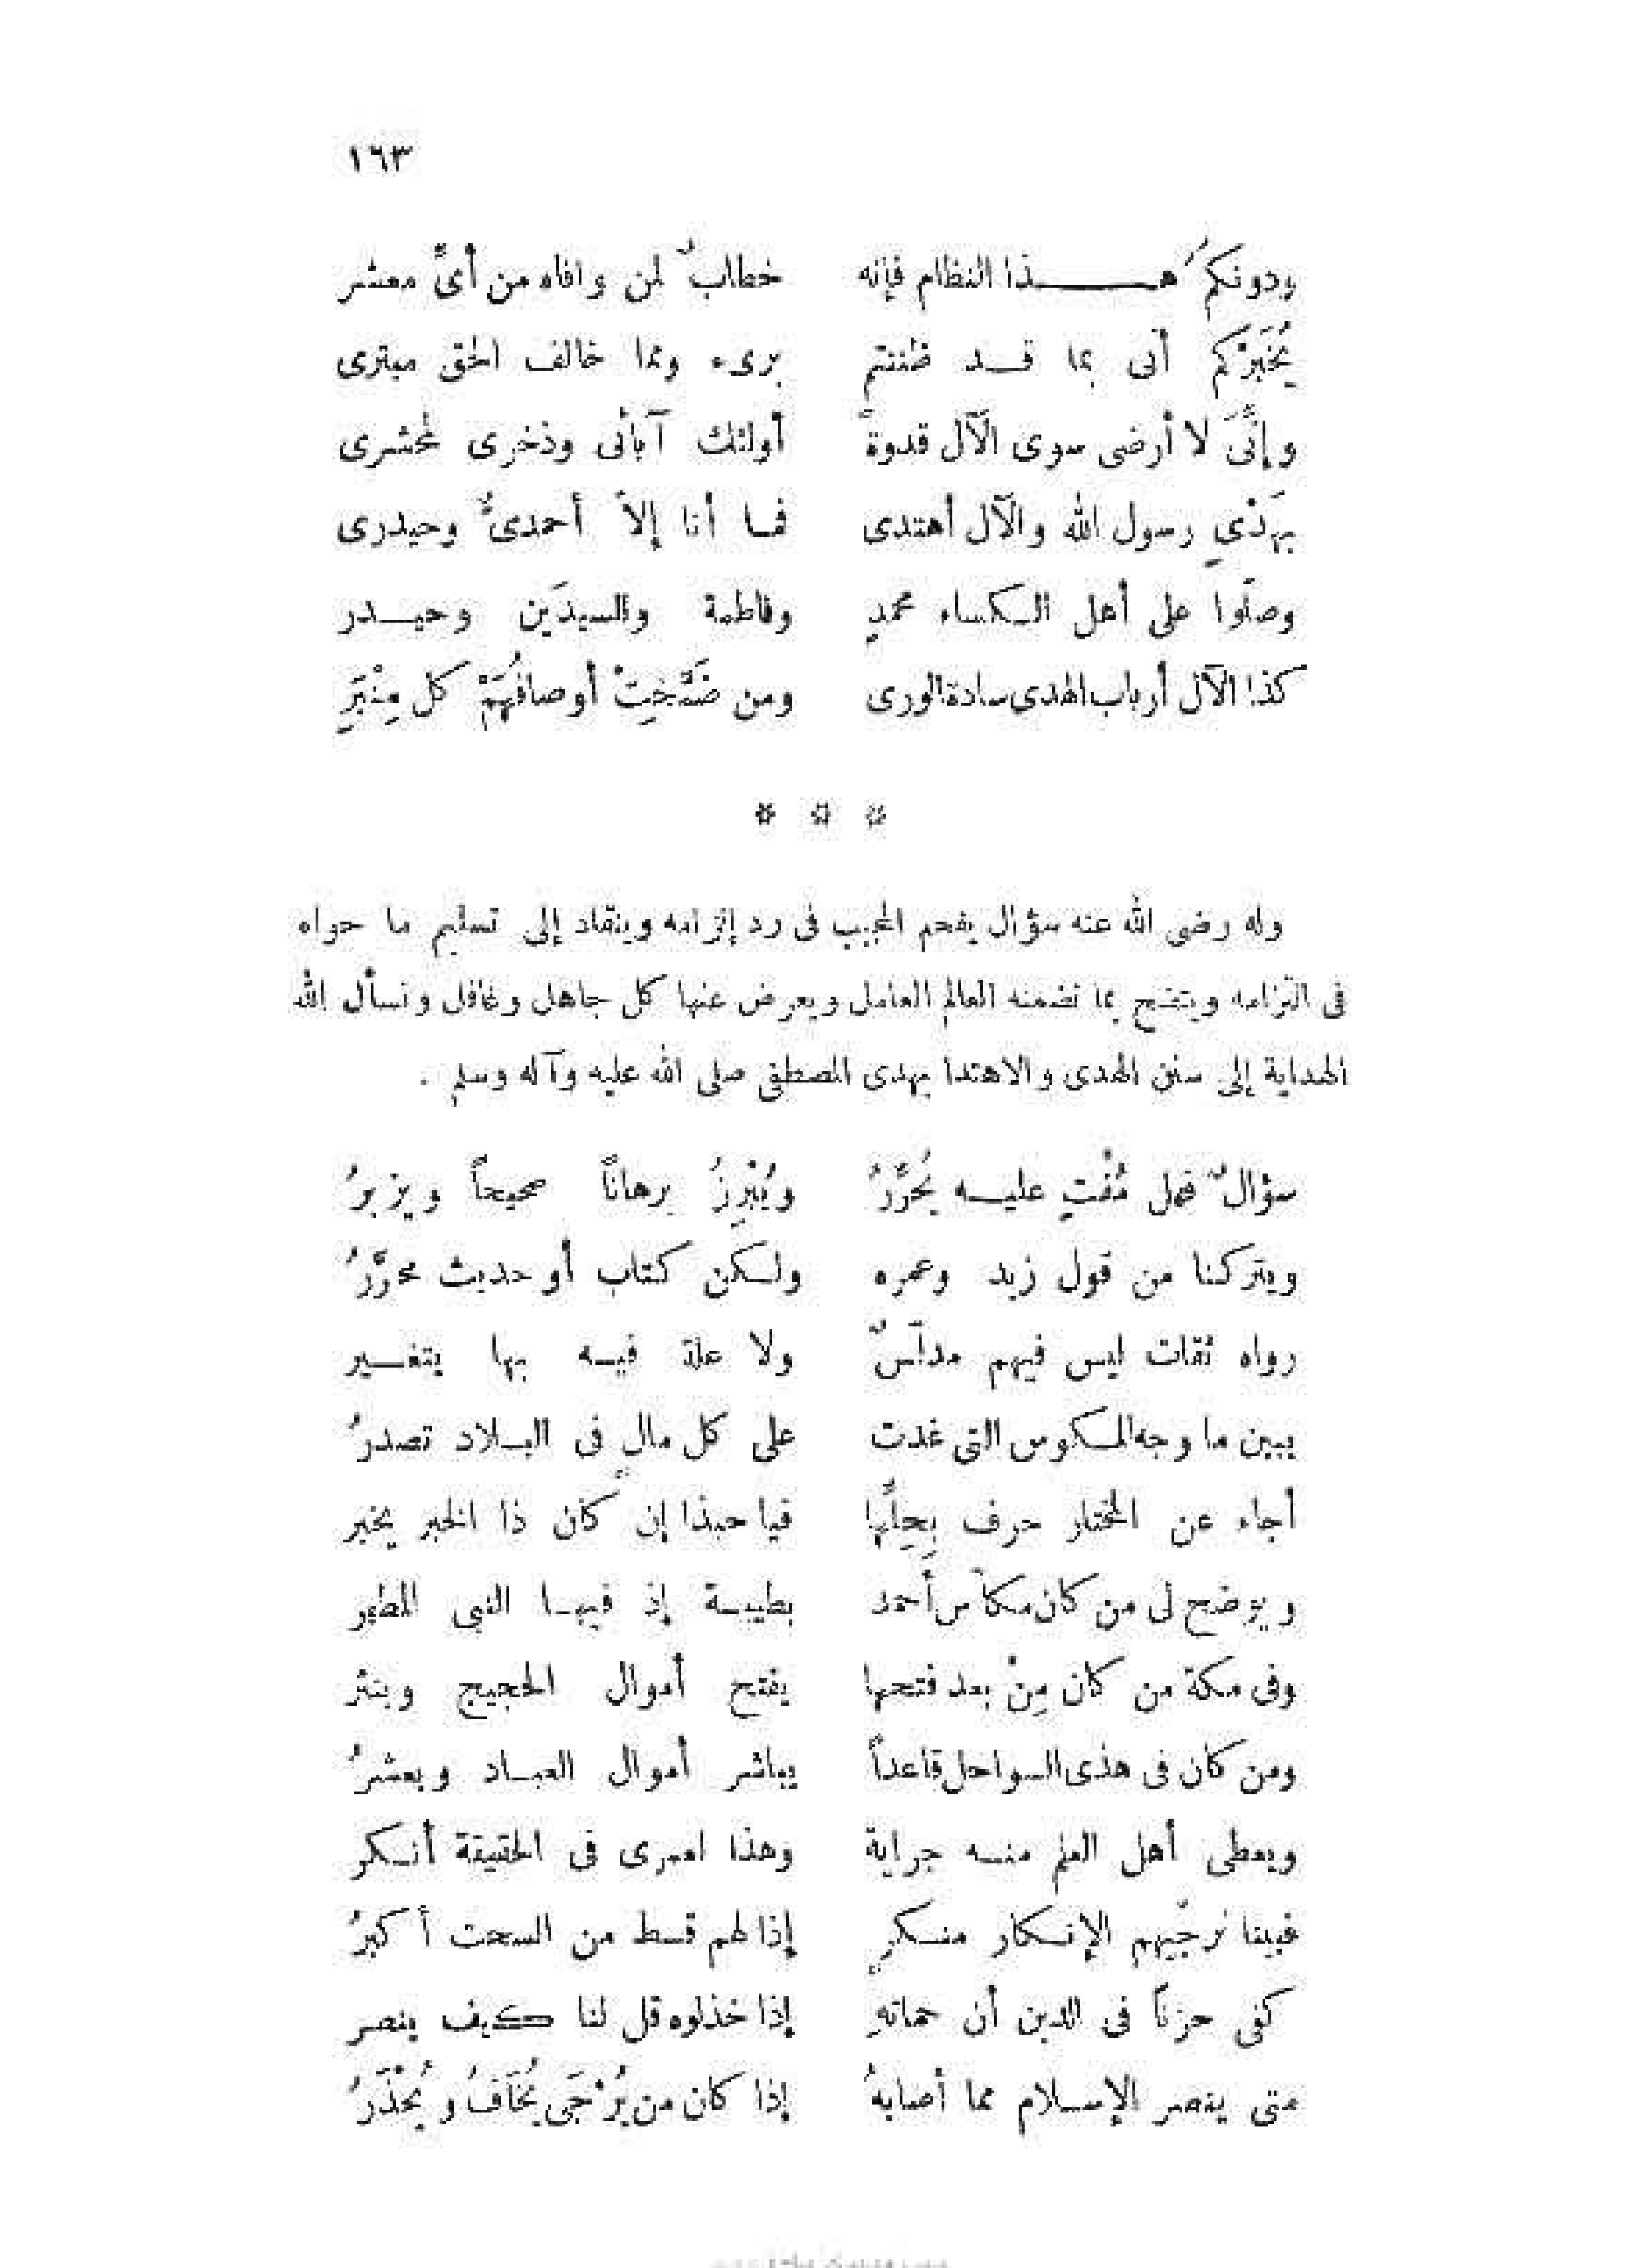 ١٦٣
ودونكمُ هذا النظام فإنه خطابٌ لمن وافاه من أىِّ معشر
يُخَبِّرْكم أنى بما قد ظننتم برىء ومما خالف الحق مبترى
وإنَّىَ لا أرضى سوى الآل قدوةً أولئك آبائى وذخرى لمحشرى
بهَدْيِ رسول الله والآل أهتدى فما أنا إلاَّ أحمدىٌّ وحيدرى
وصلُّوا على أهل الكساء محمدٍ وفاطمة والسيدَين وحيدر
كذا الآل أرباب الهدى سادة الورى ومن ضَمَّخِتْ أوصافُهُمْ كل مِنْبَرِ
* * *
وله رضى الله عنه سؤال يفحم المجيب فى رد إلزامه وينقاد إلى تسليم ما حواه
فى التزامه ويتضح بما تضمنه العالم العامل ويعرض عنها كل جاهل وغافل ونسأل الله
الهداية إلى سنن الهدى والاهتدا بهدى المصطفى صلى الله عليه وآله وسلم .
سؤالٌ فهل مُفْتٍ عليه يُحَرِّرُ ويُبْرِزُ برهاناً صحيحاً ويزبرُ
ويتركنا من قول زيد وعمره ولكن كتاب أو حديث محرَّرُ
رواه ثقات ليس فيهم مدلّسٌ ولا علة فيه بها يتغير
يبين ما وجه المكوس التى غدت على كل مالٍ فى البلاد تصدرُ
أجاء عن المختار حرف بِحِلِّها فيا حبذا إن كان ذا الخبر يخبر
ويوضح لى من كان مكّاس أحمد بطيبة إذ فيها النبى المطهر
وفى مكة من كان مِنْ بعد فتحها يفتح أموال الحجيج وينثر
ومن كان فى هذى السواحل قاعداً يباشر أموال العباد ويعشرُ
ويعطى أهل العلم منه جراية وهذا لعمرى فى الحقيقة أنكر
فبينا نرجّيهم الإنكار منكرٍ إذا لهم قسط من السحت أكبرُ
كفى حزناً فى الدين أن حماتهِ إذا خذلوه قل لنا كيف ينصر
متى ينصر الإسلام مما أصابهُ إذا كان من يُرْجَى يُخَافُ ويُحْذَرُ